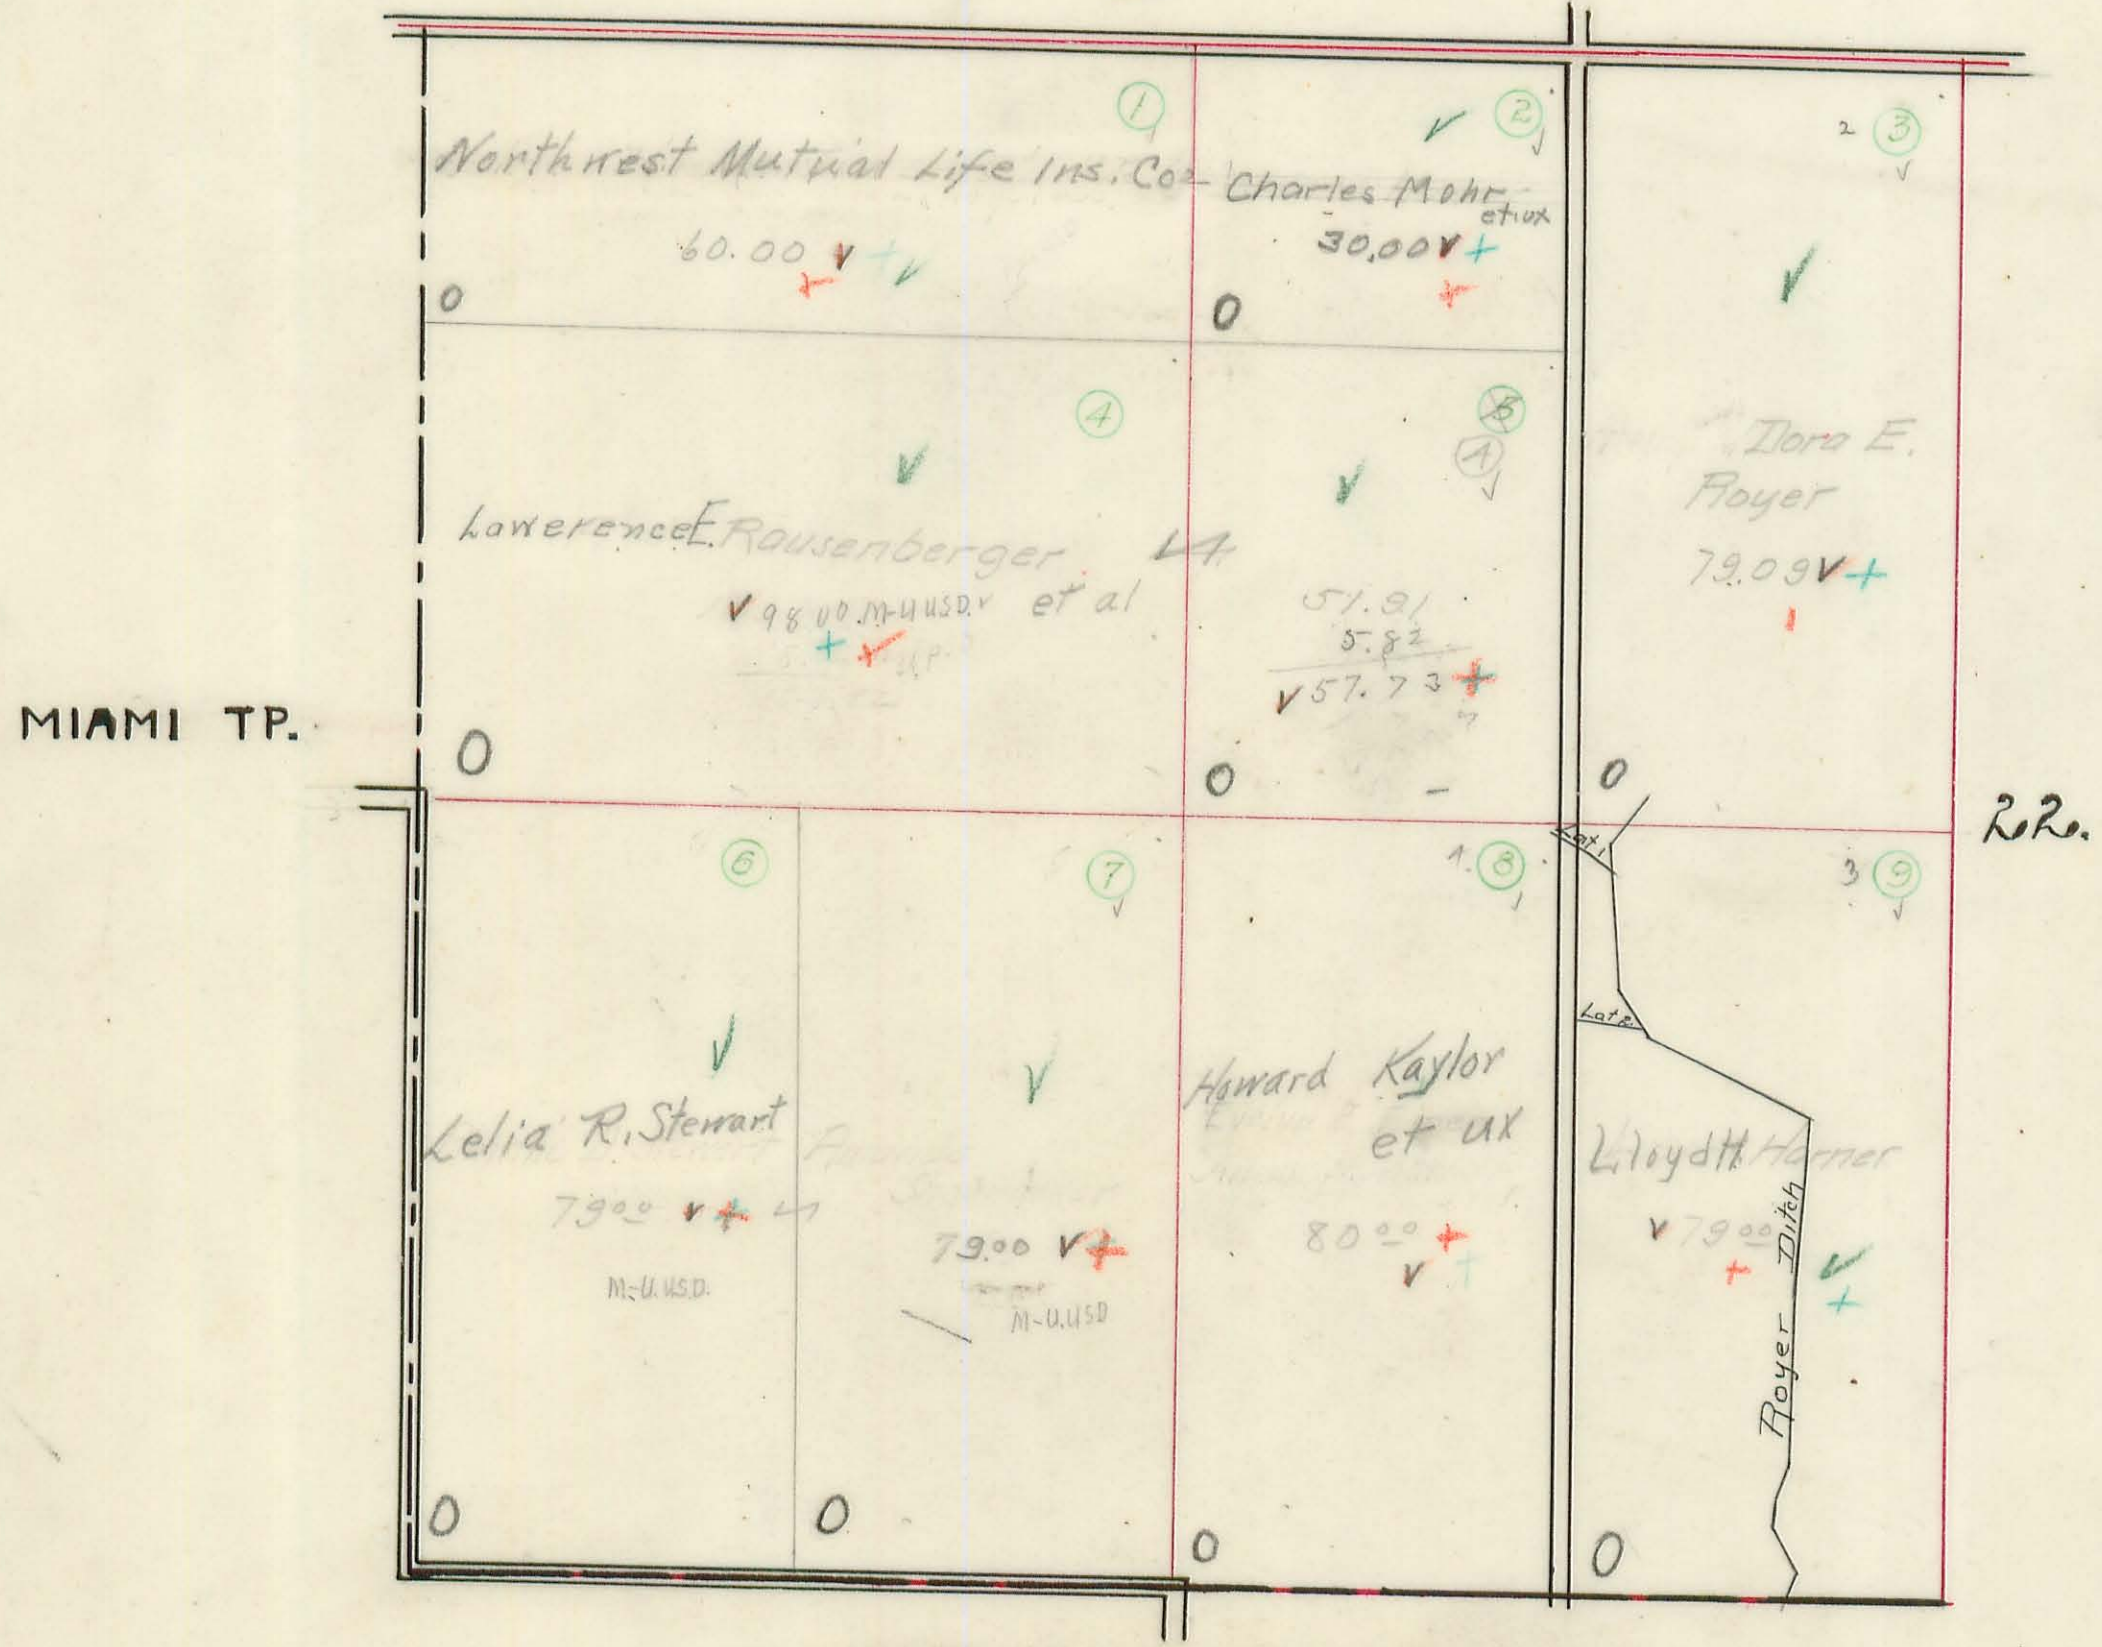 1
Northwest Mutual Life Ins. Co
60.00
0
2
Charles Mohr
et ux
30.00
0
2 3
Dora E.
Royer
79.09
0
4
Lawerence E. Rausenberger
et al
98.00 M-U USD.
0
5
4
51.91
5.82
57.73
0
MIAMI TP.
R.R.
6
Lelia R. Stewart
79.00
M-U.USD.
0
7
79.00
M-U.USD
0
1. 8
Howard Kaylor
et ux
80.00
0
Lat 1
Lat 2
3 9
Lloyd H. Harner
79.00
Royer Ditch
0